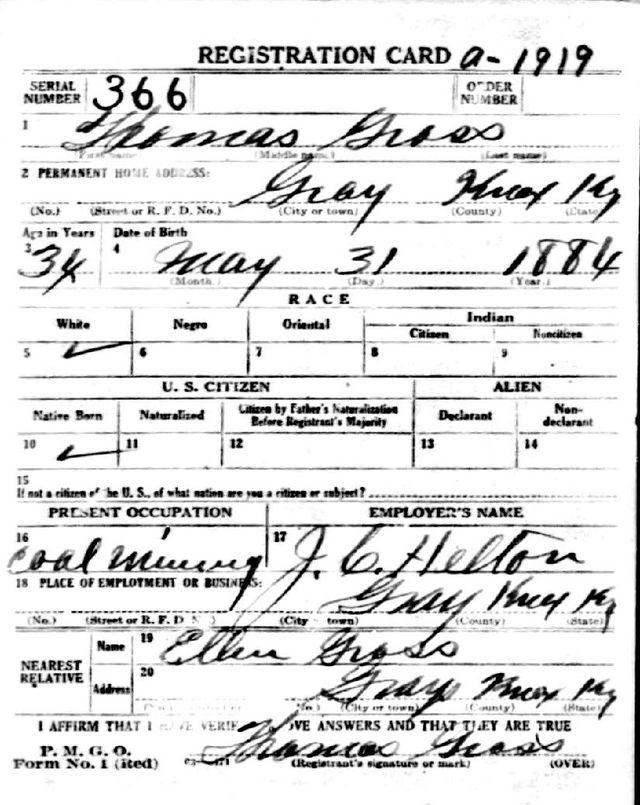 REGISTRATION CARD a-1919
SERIAL NUMBER 366 ORDER NUMBER
1 Thomas Gross
(First name) (Middle name) (Last name)
2 PERMANENT HOME ADDRESS: Gray Knox Ky
(No.) (Street or R. F. D. No.) (City or town) (County) (State)
Age in Years Date of Birth
3 34 4 May 31 1884
(Month.) (Day.) (Year.)
RACE
White Negro Oriental Indian
Citizen Noncitizen
5 6 7 8 9
U. S. CITIZEN ALIEN
Native Born Naturalized Citizen by Father's Naturalization Before Registrant's Majority Declarant Non-declarant
10 11 12 13 14
15
If not a citizen of the U. S., of what nation are you a citizen or subject?
PRESENT OCCUPATION EMPLOYER'S NAME
16 Coal Mining 17 J. C. Helton
18 PLACE OF EMPLOYMENT OR BUSINESS: Gray Knox Ky
(No.) (Street or R. F. D No.) (City town) (County) (State)
NEAREST RELATIVE Name 19 Ellen Gross
Address 20 Grays Knox Ky
(No.) (City or town) (County) (State)
I AFFIRM THAT I HAVE VERIF OVE ANSWERS AND THAT THEY ARE TRUE
P. M. G. O.
Form No. 1 (Red) Thomas Gross
(Registrant's signature or mark) (OVER)